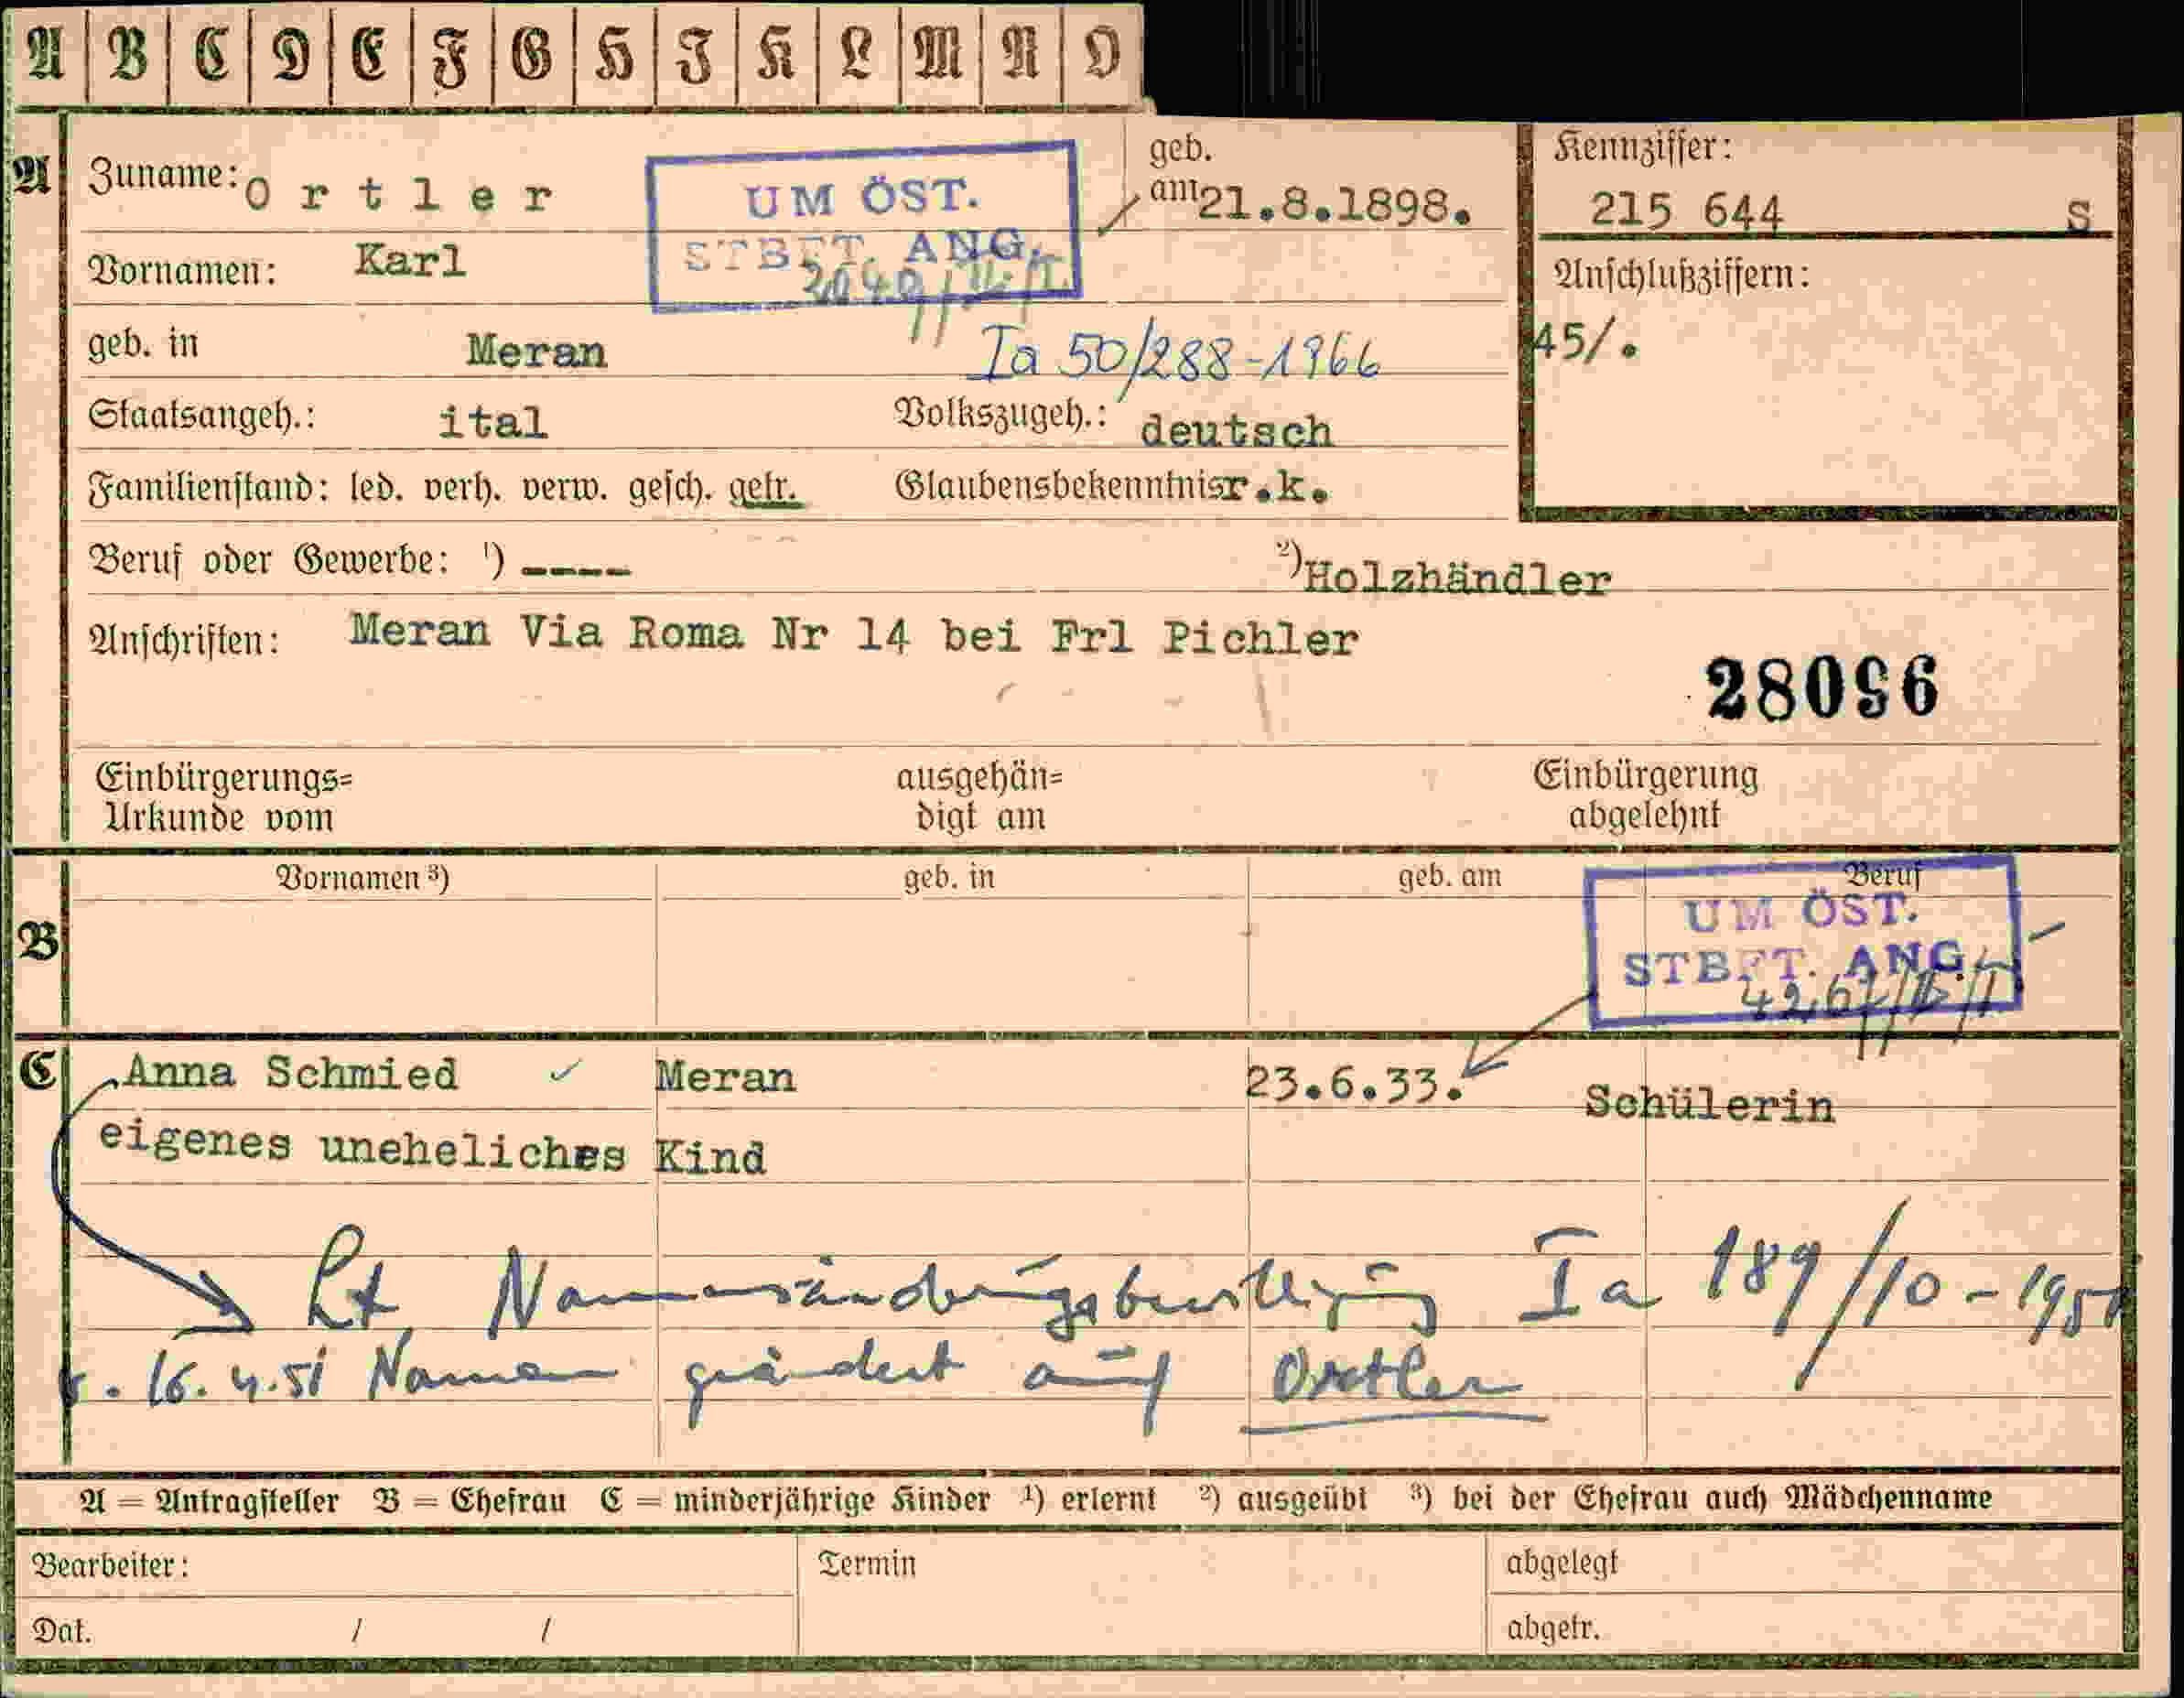 A B C D E F G H I K L M N O
A
Zuname: Ortler
UM ÖST.
STBFT. ANG.
geb. am 21.8.1898.
Kennziffer:
215 644 S
Vornamen: Karl
Anschlußziffern:
45/.
geb. in Meran
Ia 50/288-1966
Staatsangeh.: ital Volkszugeh.: deutsch
Familienstand: led. verh. verw. gesch. getr. Glaubensbekenntnis r.k.
Beruf oder Gewerbe: ¹) ---- ²) Holzhändler
Anschriften: Meran Via Roma Nr 14 bei Frl Pichler
28096
Einbürgerungs= ausgehän= Einbürgerung
Urkunde vom digt am abgelehnt
Vornamen ³) geb. in geb. am Beruf
B
UM ÖST.
STBFT. ANG.
C Anna Schmied Meran 23.6.33. Schülerin
eigenes uneheliches Kind
Lt Namensänderungsbewilligung Ia 189/10-1951
v. 16.4.51 Namen geändert auf Ortler
A = Antragsteller B = Ehefrau C = minderjährige Kinder ¹) erlernt ²) ausgeübt ³) bei der Ehefrau auch Mädchenname
Bearbeiter: Termin abgelegt
Dat. / / abgetr.